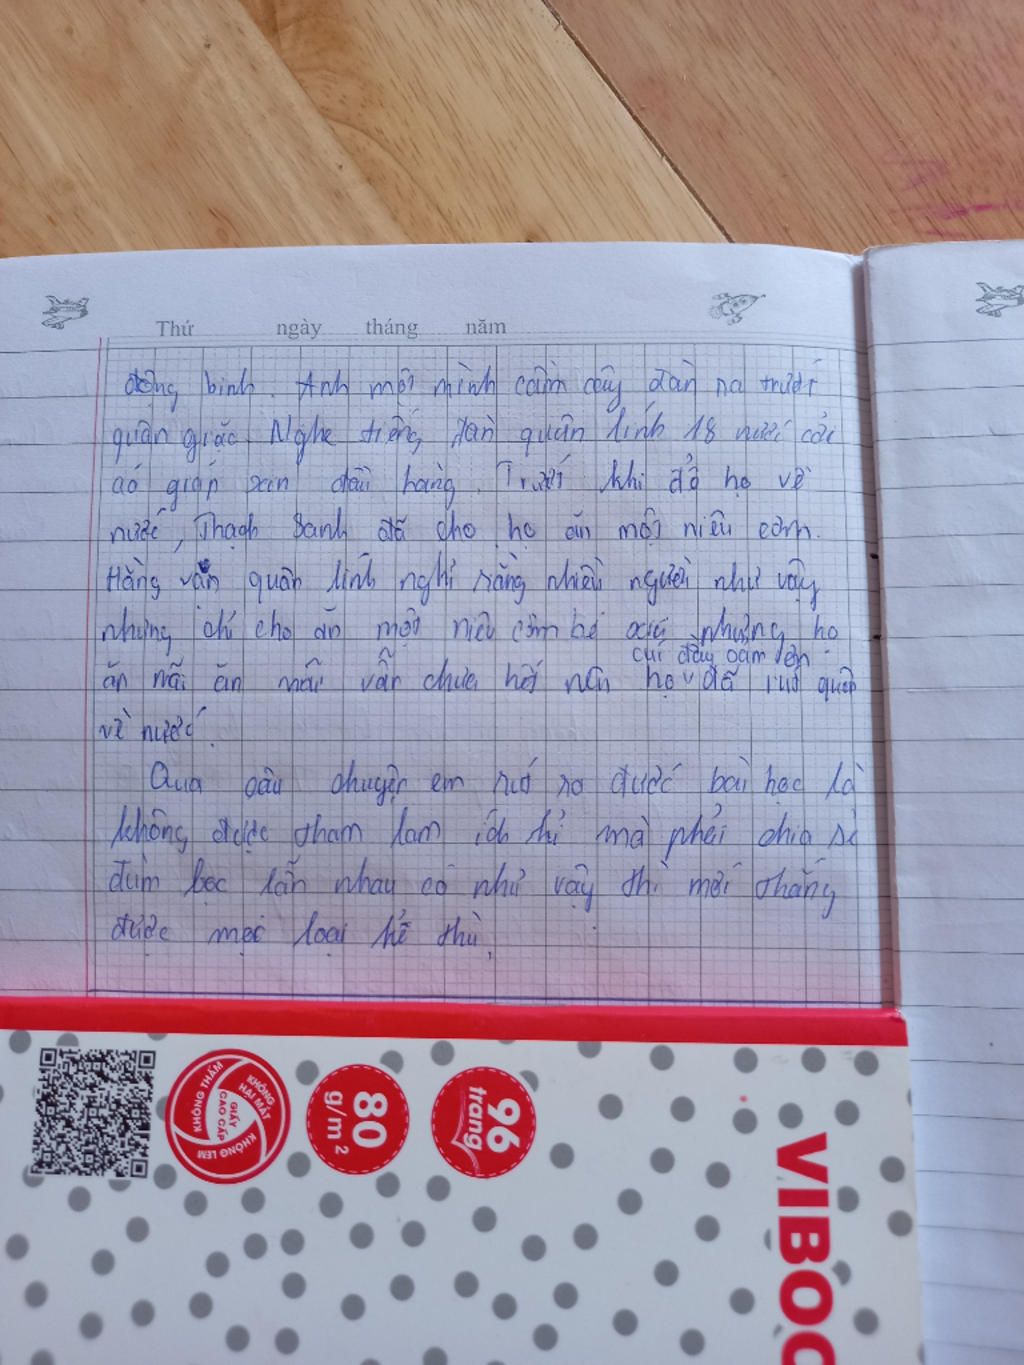 Thứ ngày tháng năm
động binh. Anh một mình cầm cây đàn ra trước
quân giặc. Nghe tiếng đàn quân lính 18 nước cởi
áo giáp xin đầu hàng. Trước khi để họ về
nước, Thạch Sanh đã cho họ ăn một niêu cơm.
Hằng vạn quân lính nghỉ rằng nhiều người như vậy
nhưng chỉ cho ăn một niêu cơm bé xíu nhưng họ
cuí đầu cảm ơn
ăn mãi ăn mãi vẫn chưa hết nên họ đã rút quân
về nước.
Qua câu chuyện em rút ra được bài học là
không được tham lam ích kỉ mà phải chia sẻ
đùm bọc lẫn nhau có như vậy thì mới thắng
được mọi loại kẻ thù.
KHÔNG THẤM
KHÔNG HẠI MẮT
KHÔNG LEM
GIẤY CAO CẤP
80 g/m²
96 trang